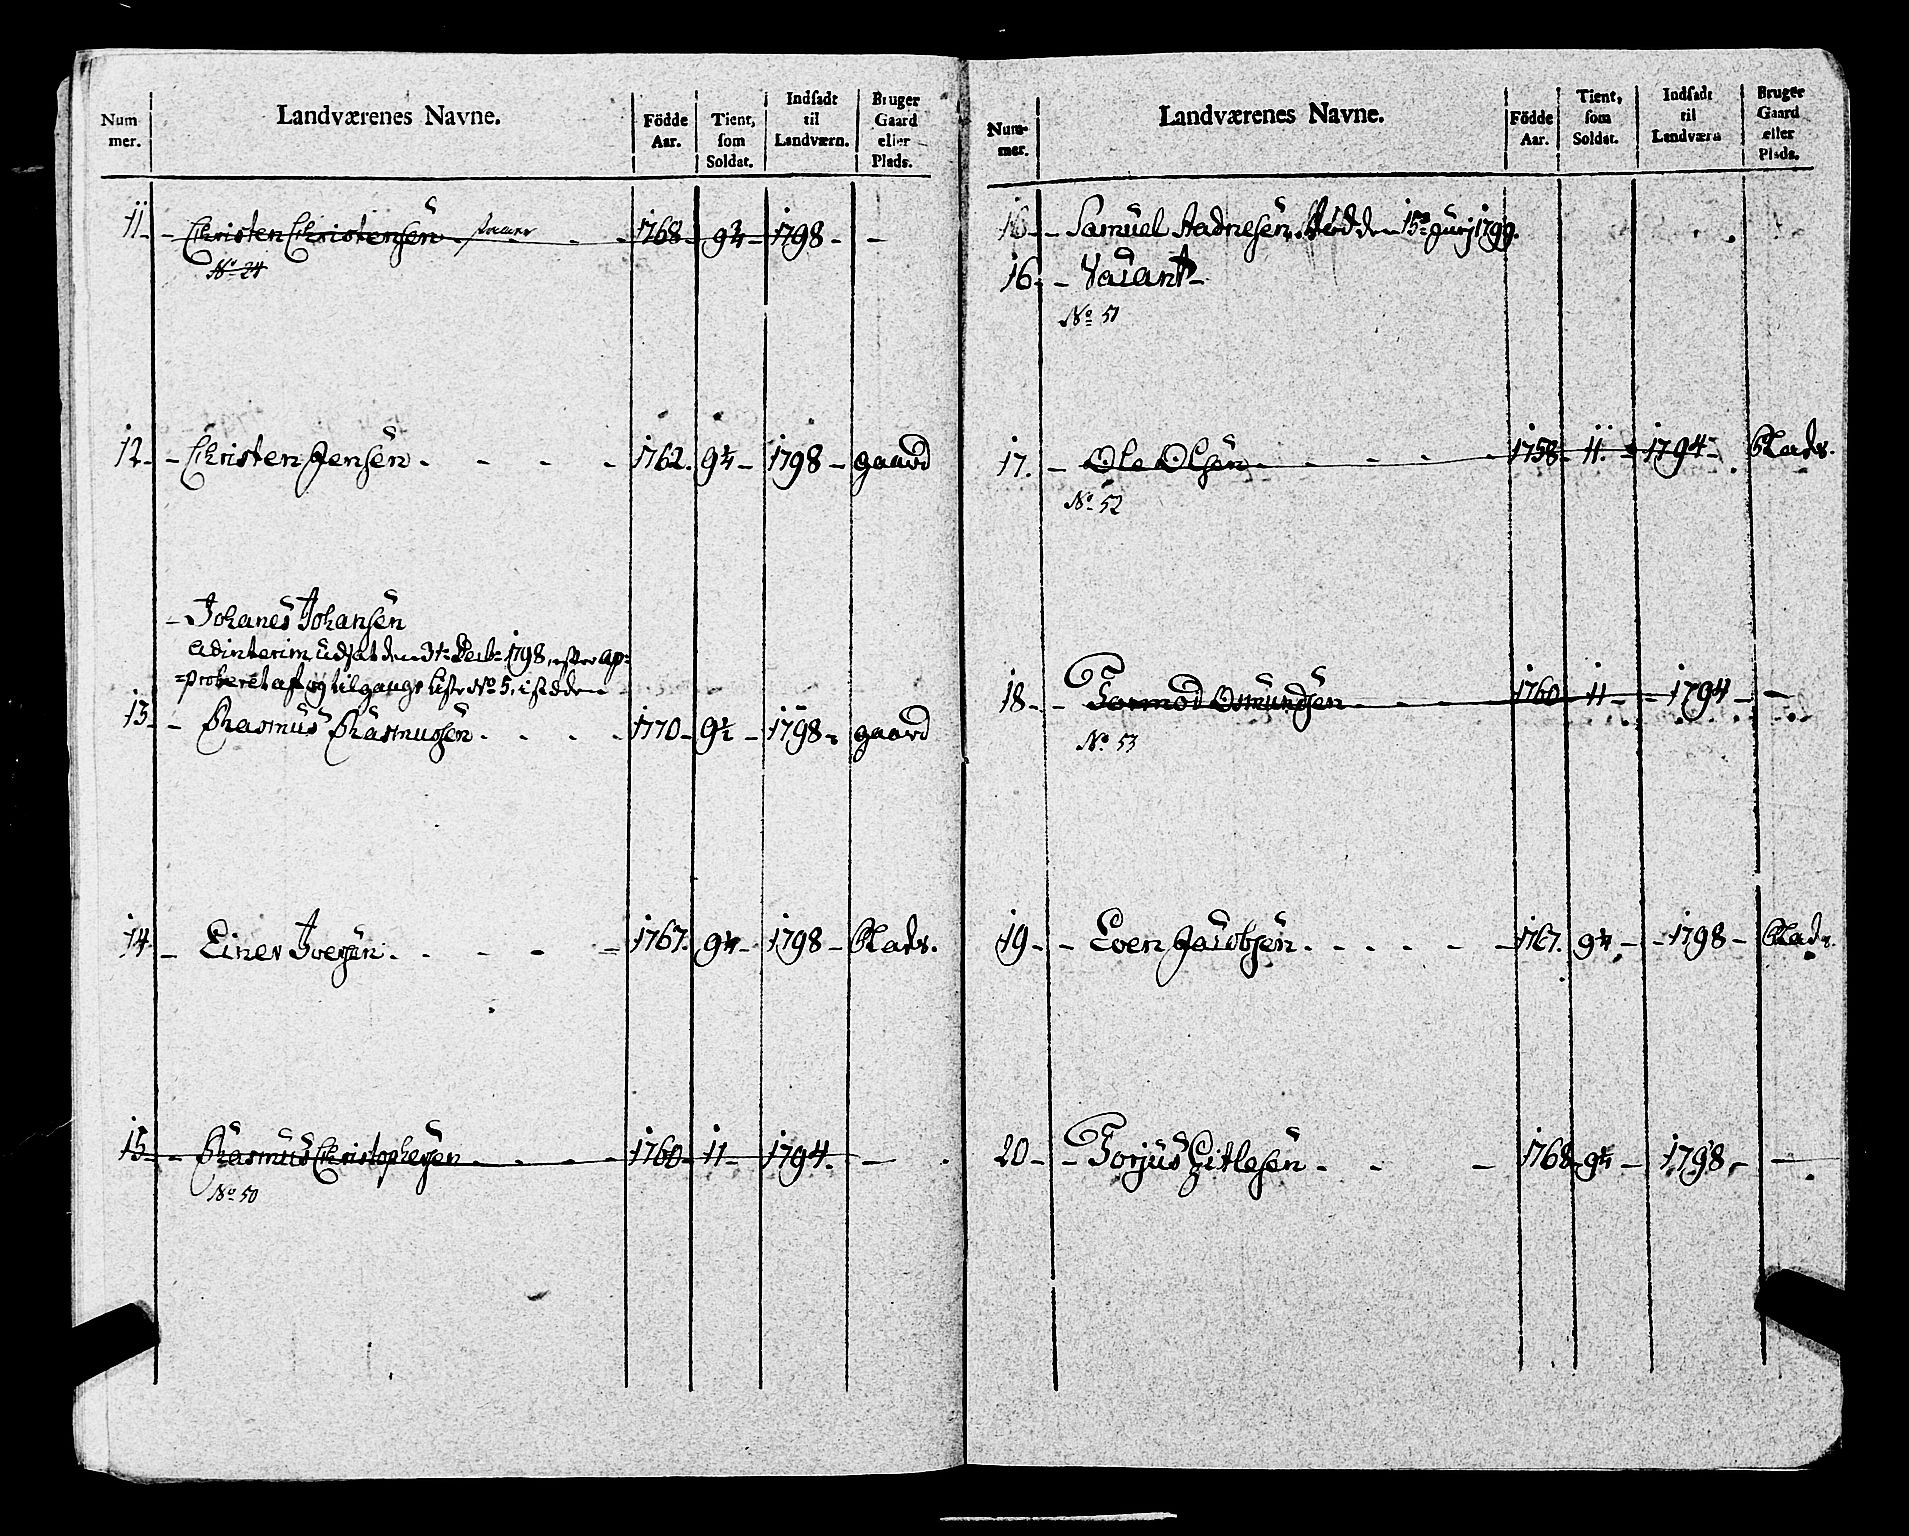 Num mer. Landværenes Navne. Födde Aar. Tient, som Soldat. Indsadt til Landværn. Bruger Gaard eller Plads.
11. - Christen Christensen - - - 1768 - 9¾ - 1798 - -
No 24
12. - Christen Jensen . - - - 1762. 9¼ - 1798 - gaard
- Johanes Johansen
adinterim udsat den 3te Decbr 1798, efter ap=
=proberet af og tilgangs Liste No 5, istæden
13. - Rasmus Rasmussen . - - - 1770 - 9½ - 1798 - gaard
14. - Einer Iversen . - - - 1767. 9¼ - 1798 - Plads.
15. - Rasmus Christophersen - - - 1760 - 11 - 1794. -
No 50
Num- mer. Landværenes Navne. Födde Aar. Tient, som Soldat. Indsadt til Landværn Bruger Gaard eller Plads.
16. - Samuel Aadnesen, död den 15de Junj 1799.
16. - Vacant -
No 51
17. - Ole Olsen . - - - 1758 - 11. - 1794 - Plads.
No 52
18. - Tormod Osmundsen - - - 1760 - 11 - 1794 - -
No 53
19. - - Even Jacobsen . - - - 1767. 9¼ - 1798 - Plads.
20 - - Torjus Gitlesen . - - 1768 - 9¼ - 1798 - -